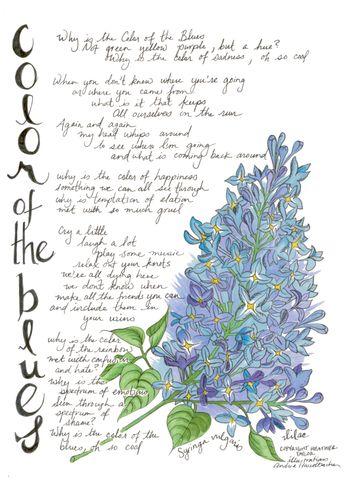 color of the blues
Why is the Color of the Blues
Not green yellow purple, but a hue?
Why is the color of sadness, oh so cool
When you don't know where you're going
or where you came from
what is it that keeps
All ourselves in the sun
Again and again
my head whips around
to see where I'm going
and what is coming back around
why is the color of happiness
something we can all see through
why is temptation of elation
met with so much gruel
Cry a little
laugh a lot
play some music
relax out your knots
we're all dying here
we don't know when
make all the friends you can
and include them in
your wins
why is the color
of the rainbow
met with confusion
and hate?
Why is the
spectrum of emotions
seen through a
spectrum of
shame?
Why is the color of the
blues, oh so cool
Syringa vulgaris
lilac
COPYRIGHT HEATHER
illustrations